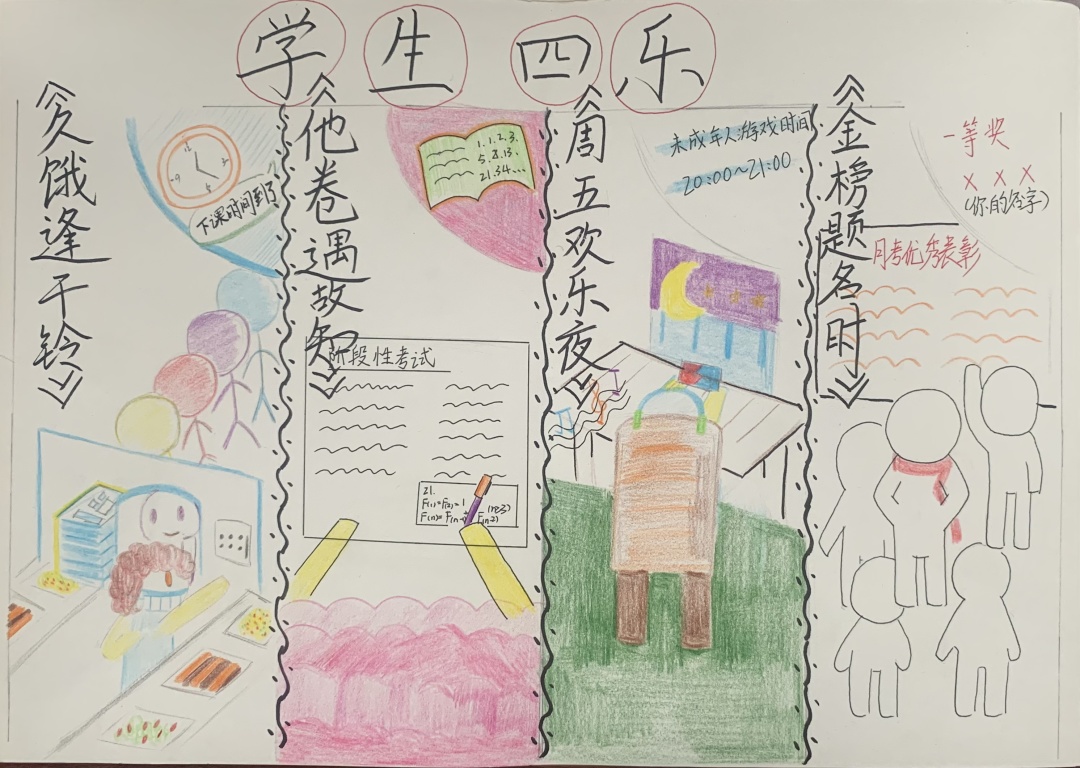 学生四乐
《久饿逢干铃》
下课时间到了
《他卷遇故知》
1.1.2.3.
5.8.13.
21.34...
阶段性考试
21.
F(1)=F(2)=1
《周五欢乐夜》
未成年人游戏时间
20:00~21:00
《金榜题名时》
一等奖
X X X
(你的名字)
月考优秀表彰